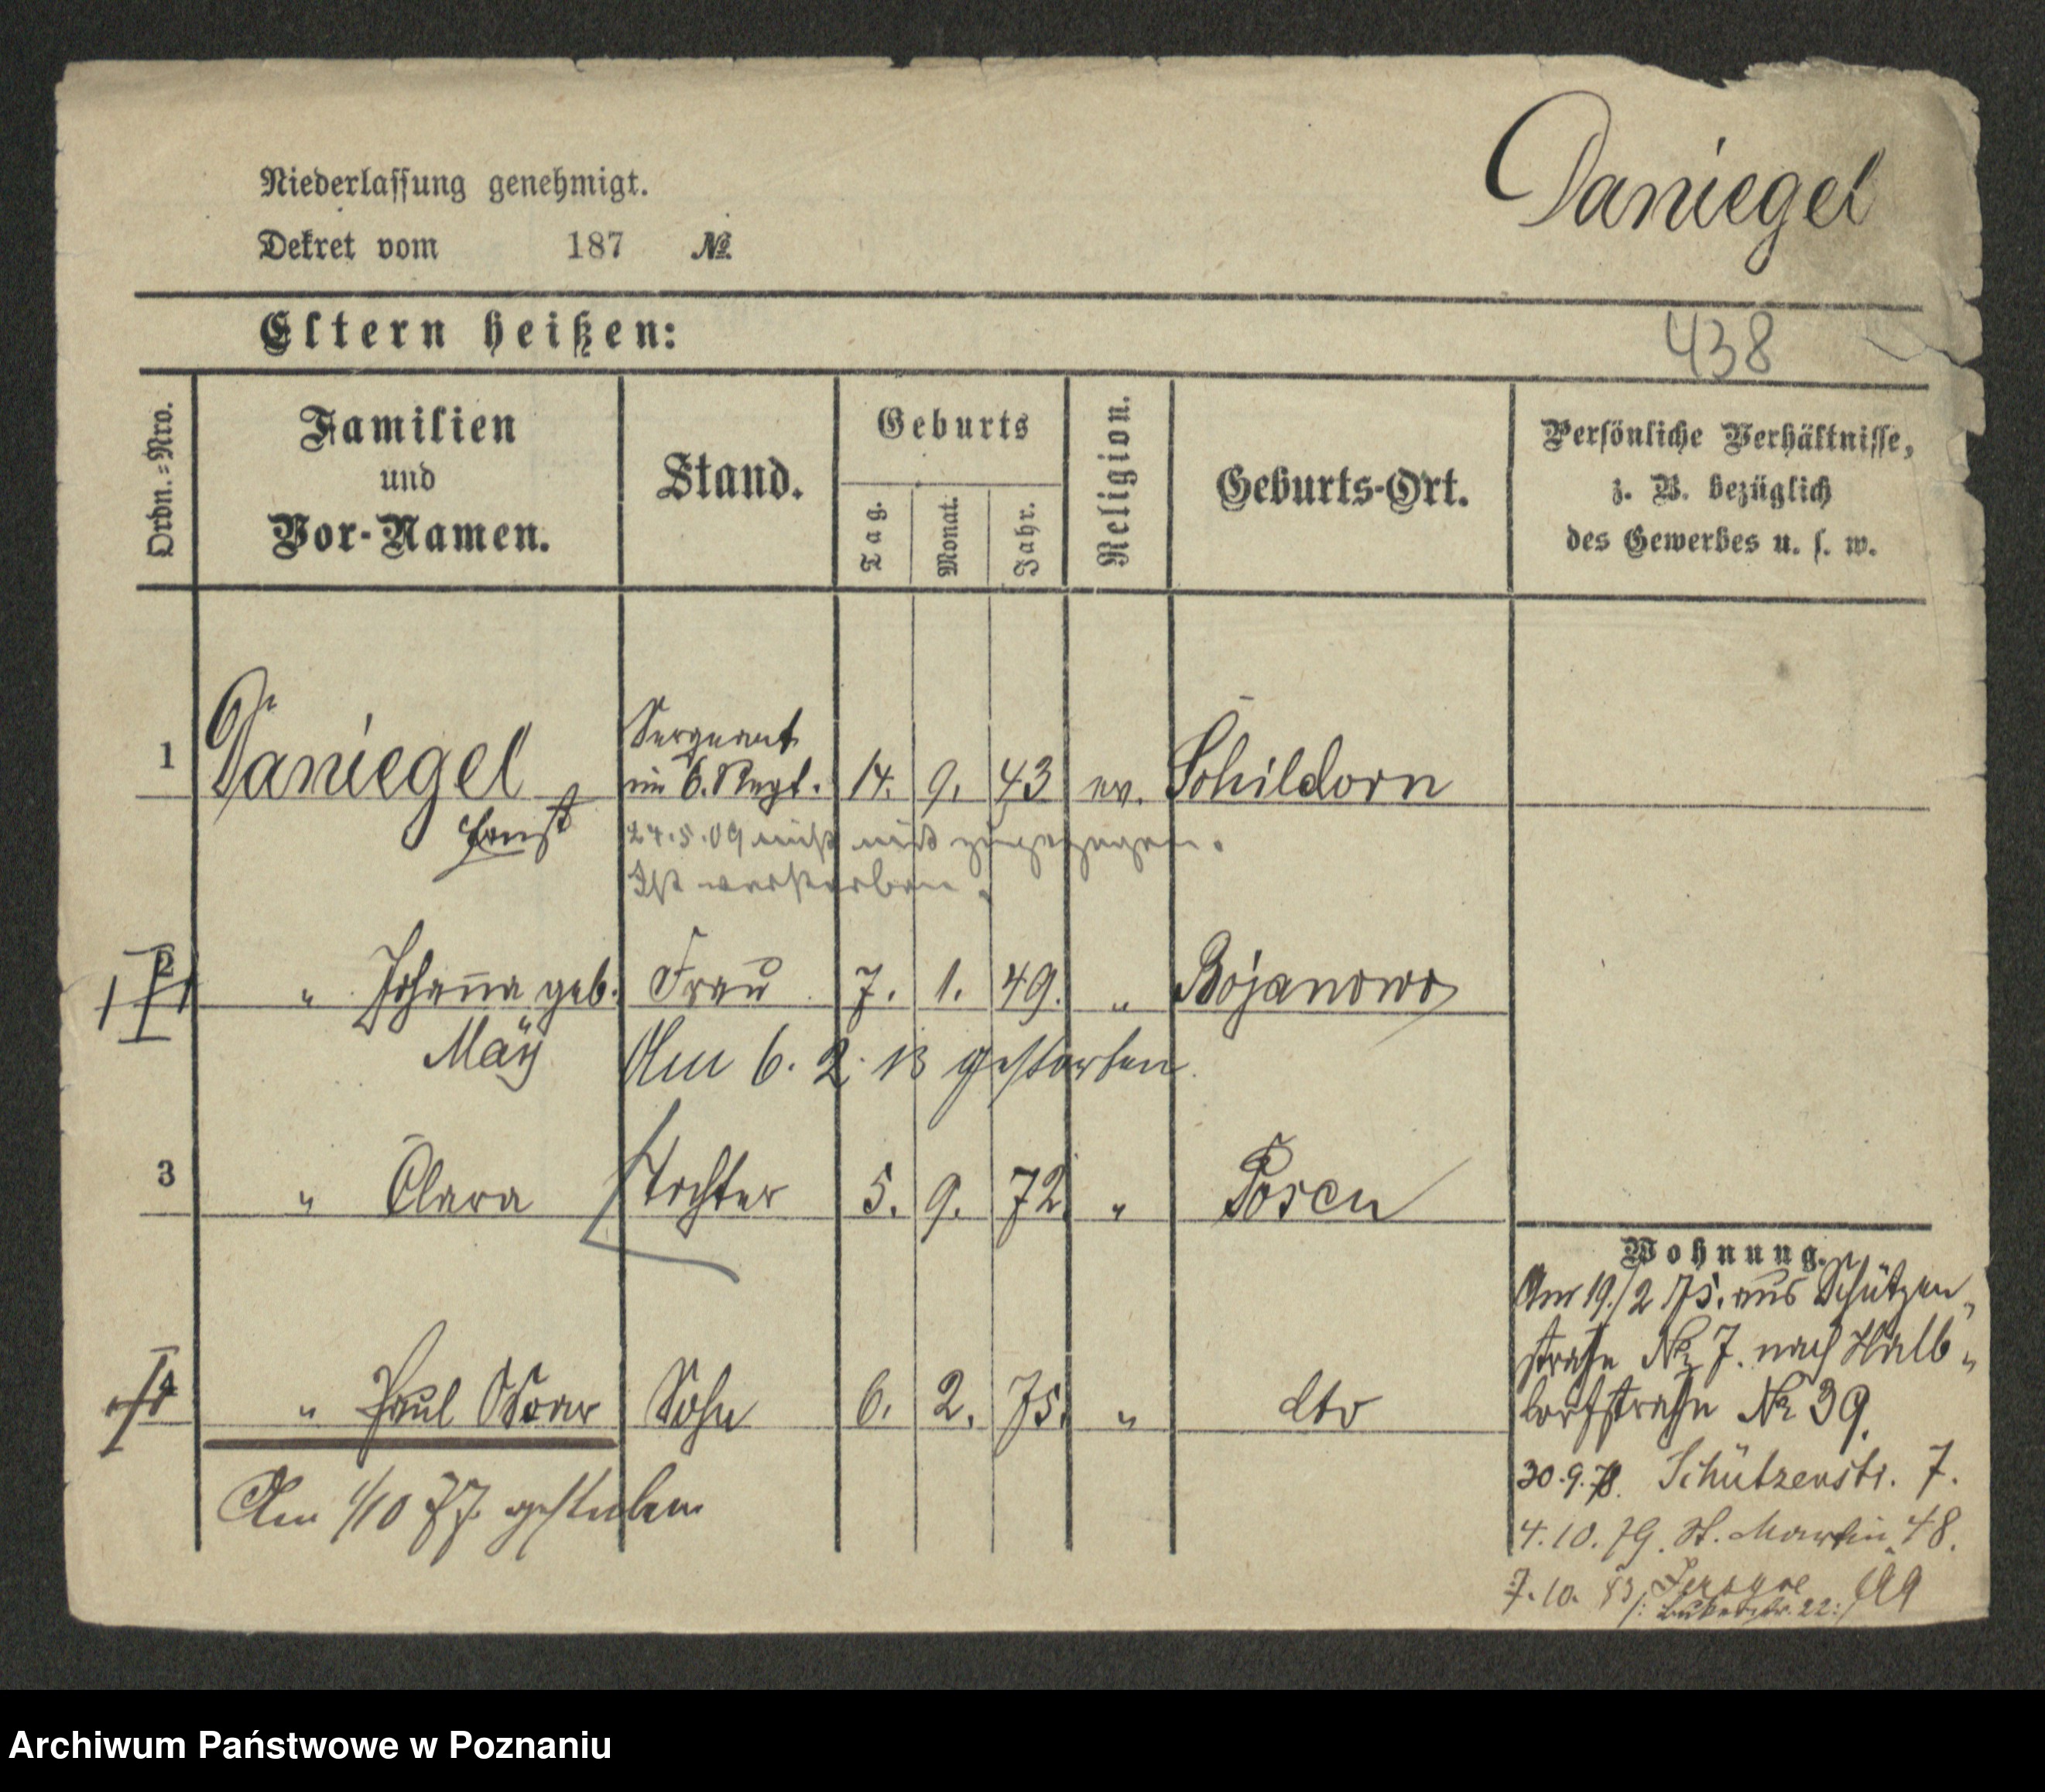 Daniegel
Niederlassung genehmigt.
Dekret vom 187 №
Eltern heißen:
438
Ordn.=Nro.
Familien
und
Vor-Namen.
Stand.
Geburts
Tag.
Monat.
Jahr.
Religion.
Geburts-Ort.
Persönliche Verhältnisse,
z. B. bezüglich
des Gewerbes u. s. w.
1 Daniegel Sergeant
im 6. Regt. 14. 9. 43 ev. Schildorn
Ernst
24.5.09 nicht zugezogen.
Ist verstorben.
2 " Johanna geb. Frau 7. 1. 49. " Bojanowo
May Am 6. 2. 13 gestorben.
3 " Clara Tochter 5. 9. 72. " Posen
4 " Paul Oscar Sohn 6. 2. 75. " dto
Am 1/10 77. gestorben
Wohnung.
Am 19./2 75. aus Schützen-
straße № 7. nach Halb-
dorfstraße № 39.
30.9.78. Schützenstr. 7.
4.10.79. St. Martin 48.
7.10.83 Jersyce
22.
Archiwum Państwowe w Poznaniu